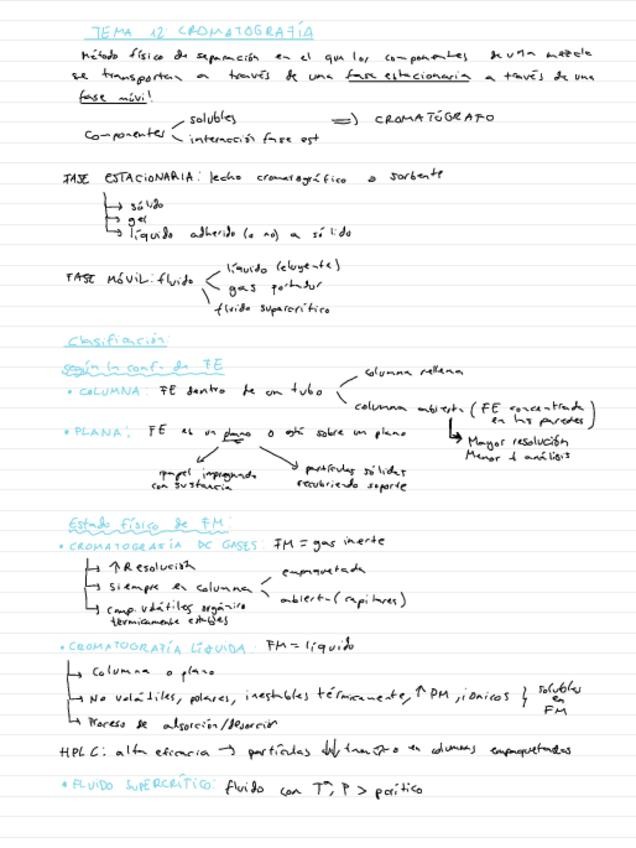 TEMA 12: CROMATOGRAFÍA
Método físico de separación en el que los componentes de una mezcla
se transportan a través de una fase estacionaria a través de una
fase móvil
Componentes
solubles
interacción fase est
=> CROMATÓGRAFO
FASE ESTACIONARIA: lecho cromatográfico o sorbente
sólido
gel
líquido adherido (o no) a sólido
FASE MÓVIL: fluido
líquido (eluyente)
gas portador
fluido supercrítico
Clasificación:
según la conf. de FE
• COLUMNA: FE dentro de un tubo
columna rellena
columna abierta (FE concentrada en las paredes)
Mayor resolución
Menor t análisis
• PLANA: FE es un plano o está sobre un plano
papel impregnado
con sustancia
partículas sólidas
recubriendo soporte
Estado físico de FM:
• CROMATOGRAFÍA DE GASES: FM = gas inerte
↑ Resolución
Siempre en columna
empaquetada
abierta (capilares)
comp. volátiles orgánico
térmicamente estables
• CROMATOGRAFÍA LÍQUIDA: FM = líquido
Columna o plano
No volátiles, polares, inestables térmicamente, ↑ PM, iónicos } solubles en FM
Proceso de adsorción/desorción
HPLC: alta eficacia → partículas ↓↓ tamaño en columnas empaquetadas
• FLUIDO SUPERCRÍTICO: fluido con T, P > pcrítico